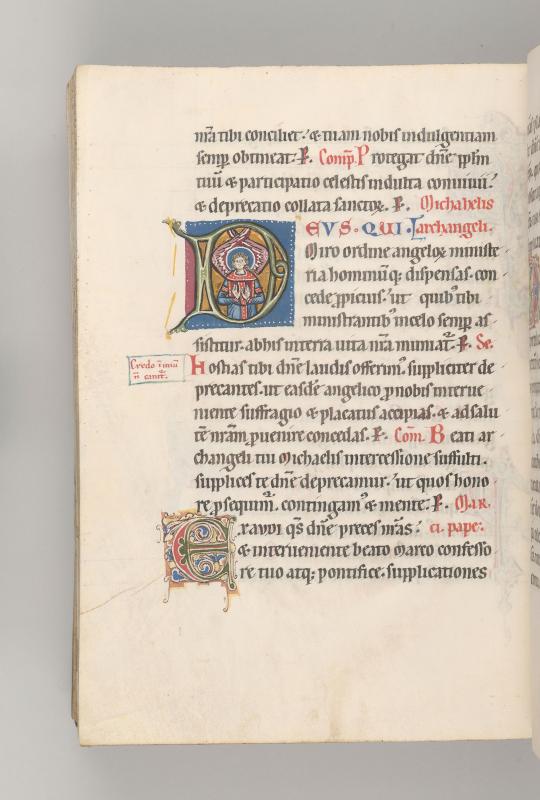 nr̄a tibi conciliet. & tuam nobis indulgentiam
semp̱ obtineat. P̱. Comp̄. Protegat dn̄e pp̄lm
tuū & participatio celestis indulta conuiuii.
& deprecatio collata sanctoꝝ. P̱. Michahelis
DEVS · QUI · archangeli.
Miro ordine angeloꝝ ministe
ria hominūq; dispensas. con
cede ꝓpicius. ut quib' tibi
ministrantib' in celo semp̱ as
sistitur. ab his in terra uita nr̄a muniat᷑. P̱. Se.
Hostias tibi dn̄e laudis offerim'. suppliciter de
precantes. ut easdē angelico ꝓ nobis interue
niente suffragio & placatus accipias. & ad salu
tē nr̄am ꝓuenire concedas. P̱. Com̄. Beati ar
changeli tui Michaelis intercessione suffulti.
supplices te dn̄e deprecamur. ut quos hono
re ꝓsequim᷑. contingam' & mente. P̱. Mar
Exaudi qs̄ dn̄e preces nr̄as: ci. pape.
& interueniente beato Marco confesso
re tuo atq; pontifice. supplicationes
Credo